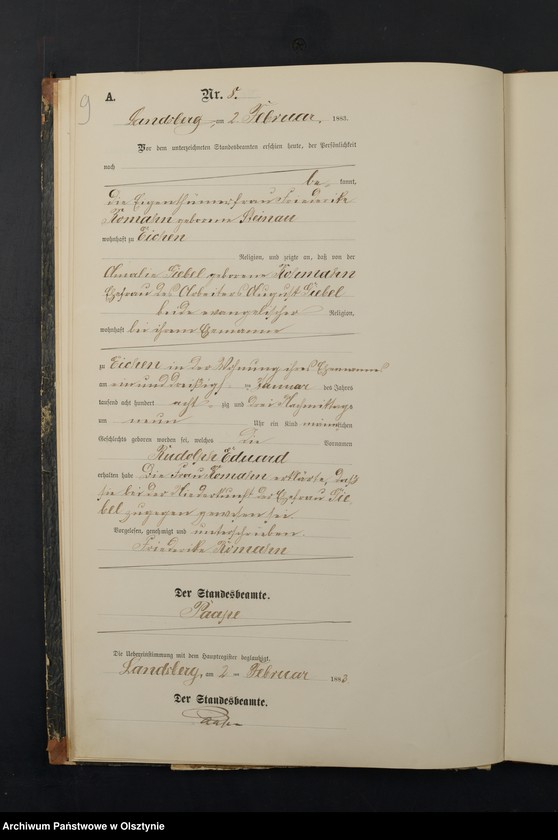 9
A.
Nr. 8.
Landsberg, am 2 Februar, 1883.
Vor dem unterzeichneten Standesbeamten erschien heute, der Persönlichkeit
nach
be kannt,
die Eigenthümerfrau Friederike
Romahn geborene Steinau
wohnhaft zu Eichen
Religion, und zeigte an, daß von der
Amalie Diebel geborene
Ehefrau des Arbeiters August Diebel
beide evangelischer Religion,
wohnhaft bei ihrem Ehemanne
zu Eichen in der Wohnung ihres Ehemannes
am einunddreißig ten Januar des Jahres
tausend acht hundert acht zig und drei Nachmittags
um neun Uhr ein Kind männlichen
Geschlechts geboren worden sei, welches die Vornamen
Rudolph Eduard
erhalten habe Die Frau Romahn erklärte, daß
sie bei der Niederkunft der Ehefrau Die
bel zugegen gewesen sei
Vorgelesen, genehmigt und unterschrieben.
Friederike Romahn
Der Standesbeamte.
Paape
Die Uebereinstimmung mit dem Hauptregister beglaubigt.
Landsberg, am 2 ten Februar 1883
Der Standesbeamte.
Paape
Archiwum Państwowe w Olsztynie